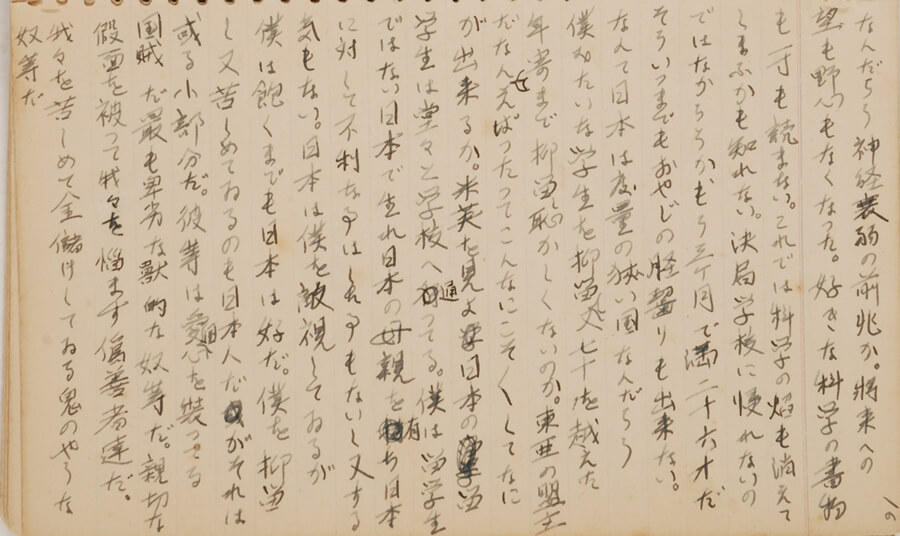 なんだろう 神経衰弱の前兆か。將来への
望も野心もなくなった。好きな科学の書物
も一寸も読まない。これでは科学の焰も消えて
しまふかも知れない。決局学校に帰れないの
ではなからうかもう三ケ月で満二十六才だ
そういつまでもおやじの脛齧りも出来ない。
なんて日本は度量の狹い国なんだらう
僕みたいな学生を抑留し七十を越えた
年寄まで抑留し恥かしくないのか。東亜の盟主
だなんていばったってこんなにこそこそしてなに
が出来るか。米英を見よ 日本の留
学生は堂々と学校へ通ってる。僕は留学生
ではない日本で生れ日本の母親を有ち日本
に対して不利な事はした事もないし又する
気もない。日本は僕を敵視してゐるが
僕は飽くまでも日本は好だ。僕を抑留
し又苦しめてゐるのも日本人だがそれは
或る小部分だ。彼等は愛国心を装ってる
国賊だ最も卑劣な獣的な奴等だ。親切な
假面を被って我々を惱ます偽善者達だ。
我々を苦しめて金儲けしてゐる鬼のやうな
奴等だ